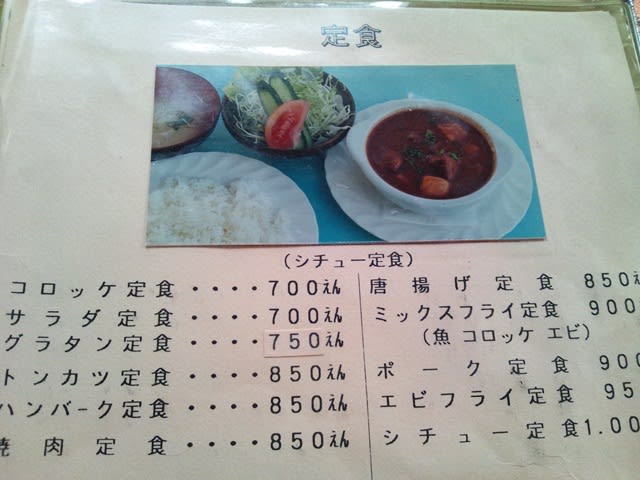 定食
(シチュー定食)
コロッケ定食・・・・700えん
サラダ定食・・・・700えん
グラタン定食・・・・750えん
トンカツ定食・・・・850えん
ハンバーク定食・・・・850えん
焼肉定食・・・・850えん
唐揚げ定食 850え
ミックスフライ定食 900
(魚 コロッケ エビ)
ポーク定食 900
エビフライ定食 95
シチュー定食1.00